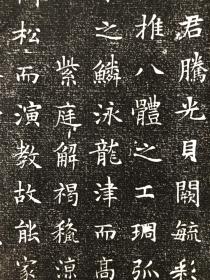 君騰光貝闕毓彩
推八體之工琱弧
之鱗泳龍津而高
紫庭解褐龝涼
松而演教故能家